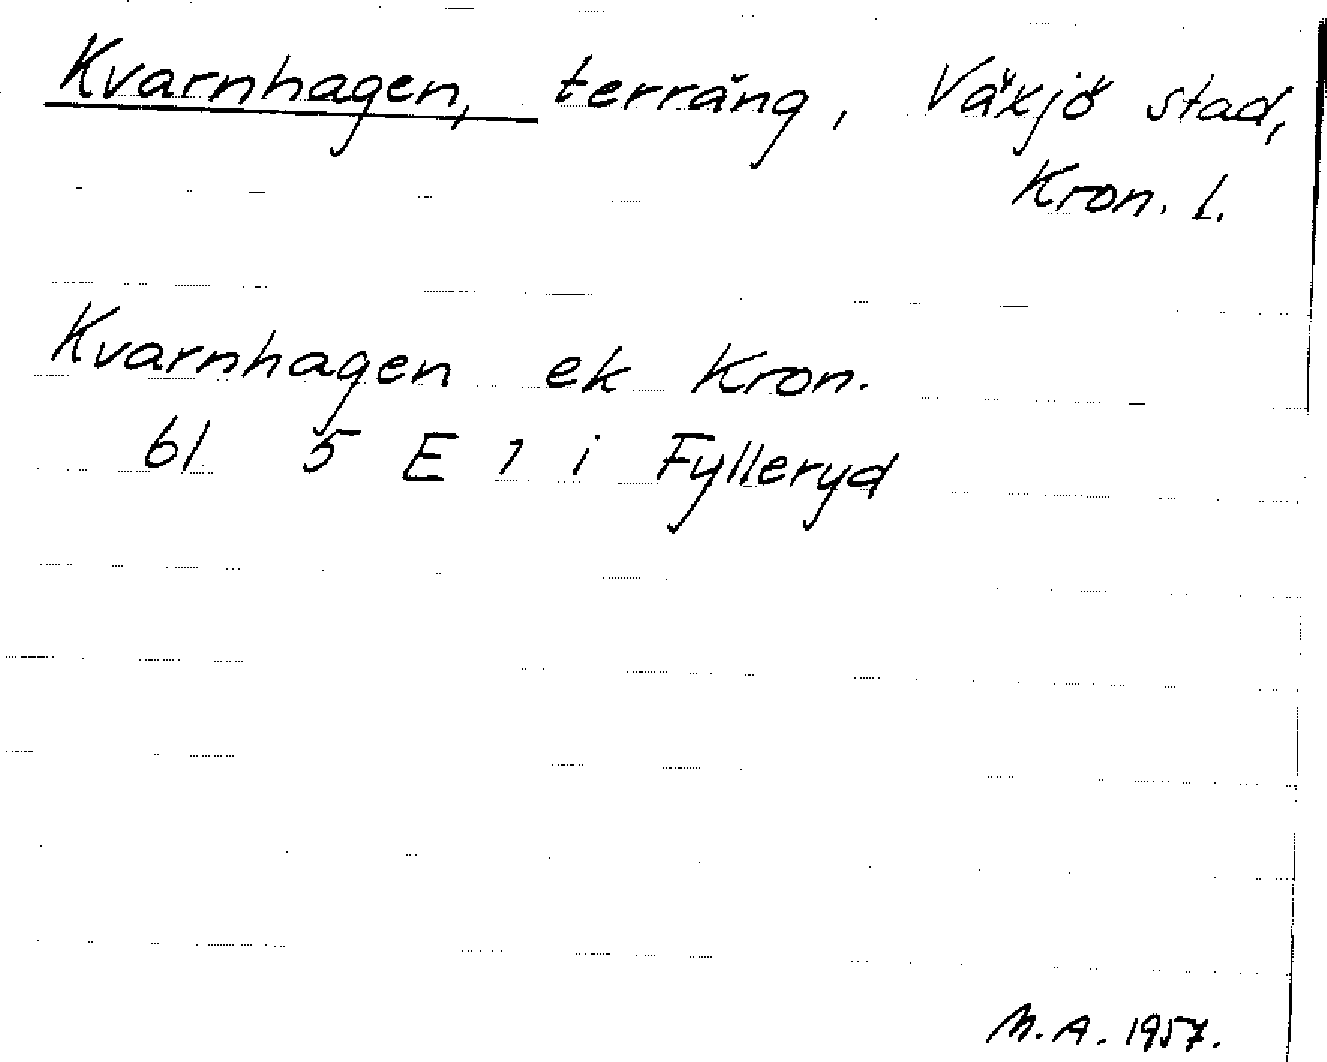 Kvarnhagen, terräng, Växjö stad,
Kron. l.
Kvarnhagen ek Kron.
61 5 E 1 i Fylleryd
M.A. 1957.